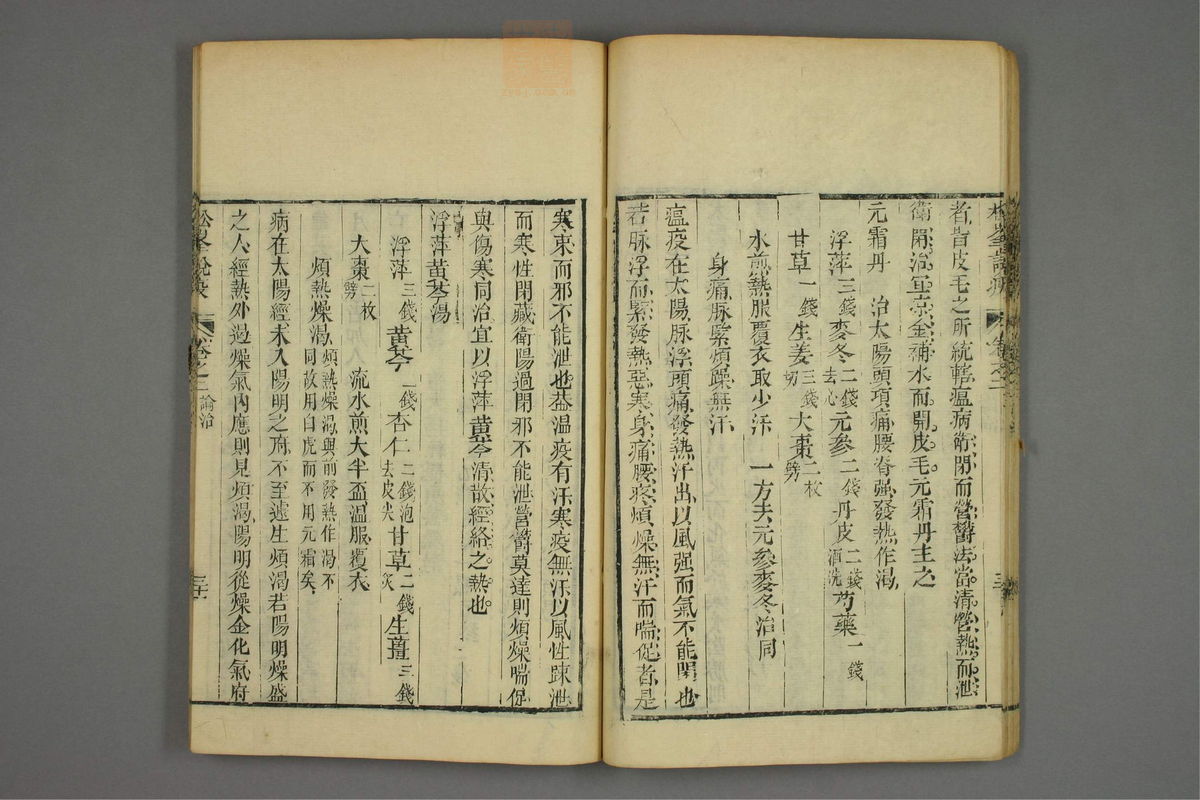 者皆皮毛之所統轄瘟病衛閉而營鬱法當清營熱而泄
衛閉治宜涼金補水而開皮毛元霜丹主之
元霜丹 治太陽頭項痛腰脊强發熱作渴
浮萍三錢麥冬二錢去心元參二錢丹皮二錢酒洗芍藥一錢
甘草一錢生姜三錢切大棗二枚劈
水煎熱服覆衣取少汗 一方去元參麥冬治同
身痛脉緊煩躁無汗
瘟疫在太陽脉浮頭痛發熱汗出以風强而氣不能閉也
若脉浮而緊發熱惡寒身痛腰疼煩燥無汗而喘促者是
寒束而邪不能泄也葢溫疫有汗寒疫無汗以風性疎泄
而寒性閉藏衛陽過閉邪不能泄營鬱莫達則煩燥喘促
與傷寒同治宜以浮萍黃芩清散經絡之熱也
浮萍黃芩湯
浮萍三錢黃芩一錢杏仁二錢泡去皮尖甘草二錢炙生薑三錢
大棗二枚劈 流水煎大半盃溫服覆衣
煩熱燥渴煩熱燥渴與前發熱作渴不同故用白虎而不用元霜矣
病在太陽經未入陽明之府不至遽生煩渴若陽明燥盛
之人經熱外過燥氣內應則見煩渴陽明從燥金化氣府
松峯說疫 卷之二 論治